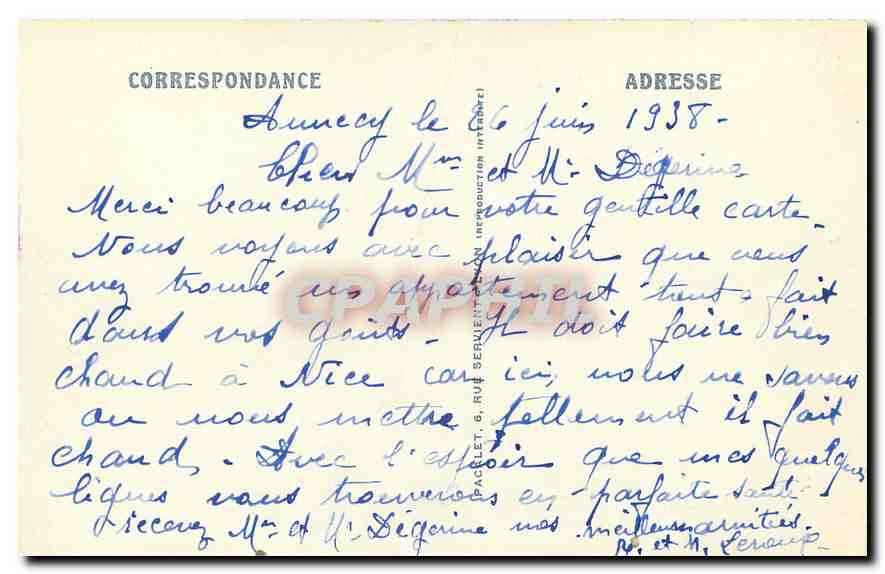 CORRESPONDANCE
ADRESSE
Annecy le 26 juin 1938-
Chers Mme et Mr Dégerine
Merci beaucoup pour votre gentille carte.
Nous voyons avec plaisir que vous
avez trouvé un appartement tout à fait
dans vos goûts. Il doit faire bien
chaud à Nice car ici, nous ne savons
ou nous mettre tellement il fait
chaud. Avec l'espoir que mes quelques
lignes vous trouverons en parfaite santé
recevez Mme et Mr Dégerine nos meilleurs amitiés.
et
PACALET, 6, RUE SERVIENT, LYON (REPRODUCTION INTERDITE)
CPAPHIL